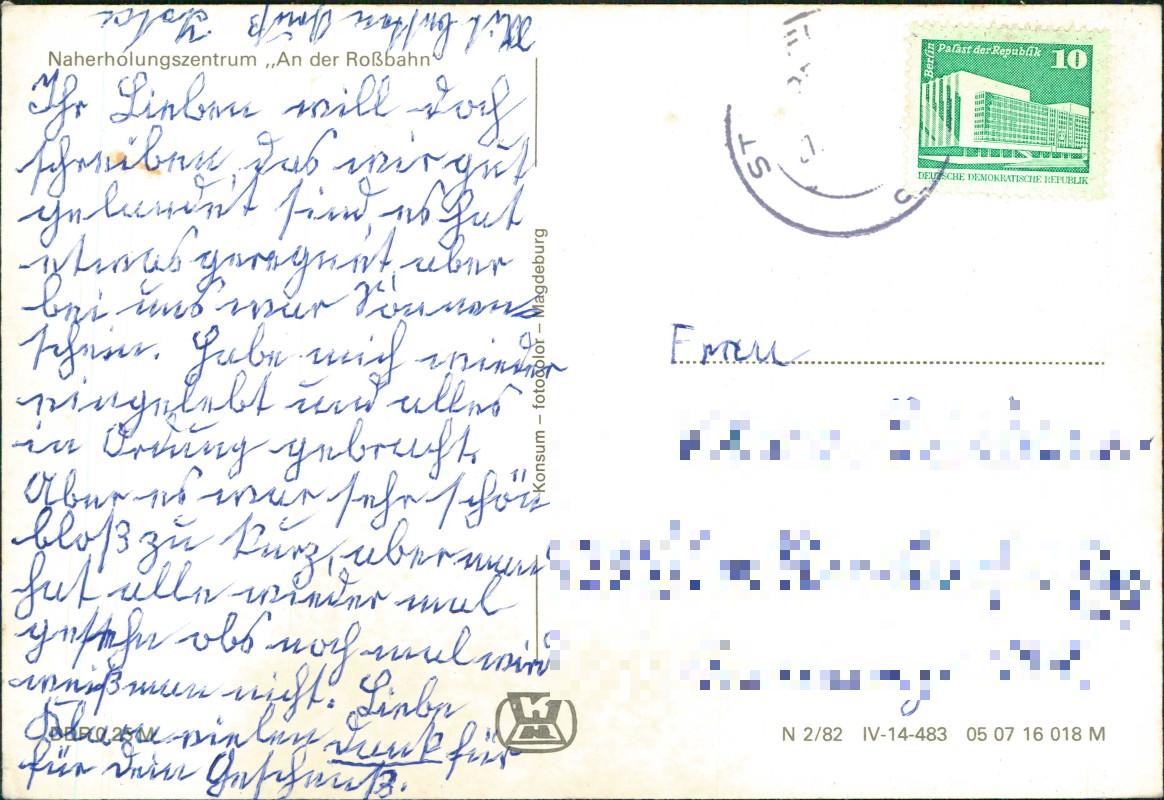 Naherholungszentrum „An der Roßbahn"
Ihr Lieben will doch
schreiben, das wir gut
gelandet sind, es hat
etwas geregnet, aber
bei uns war Sonnen
schein. Habe mich wieder
eingelebt und alles
in Ordung gebracht.
Aber es war sehr schön
bloß zu kurz, aber man
hat alle wieder mal
gesehn obs noch mal wird
weiß man nicht. Liebe
vielen dank für
für dein Geschenk.
Mit besten Gruß
EBP 0,25 M
Konsum – fotocolor – Magdeburg
Berlin Palast der Republik 10
DEUTSCHE DEMOKRATISCHE REPUBLIK
ST
Frau
N 2/82 IV-14-483 05 07 16 018 M